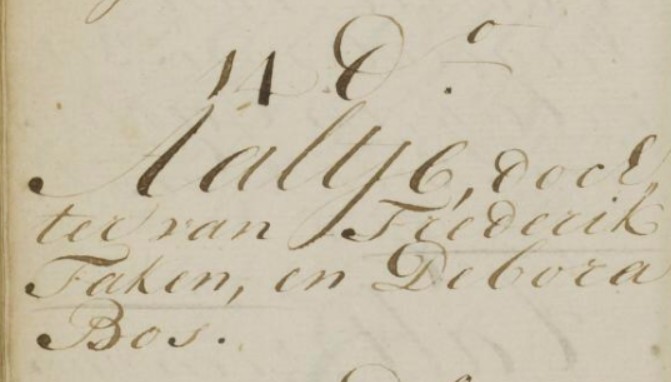 14 D.º
Aaltje, doch
ter van Frederik
Faken, en Debora
Bos.